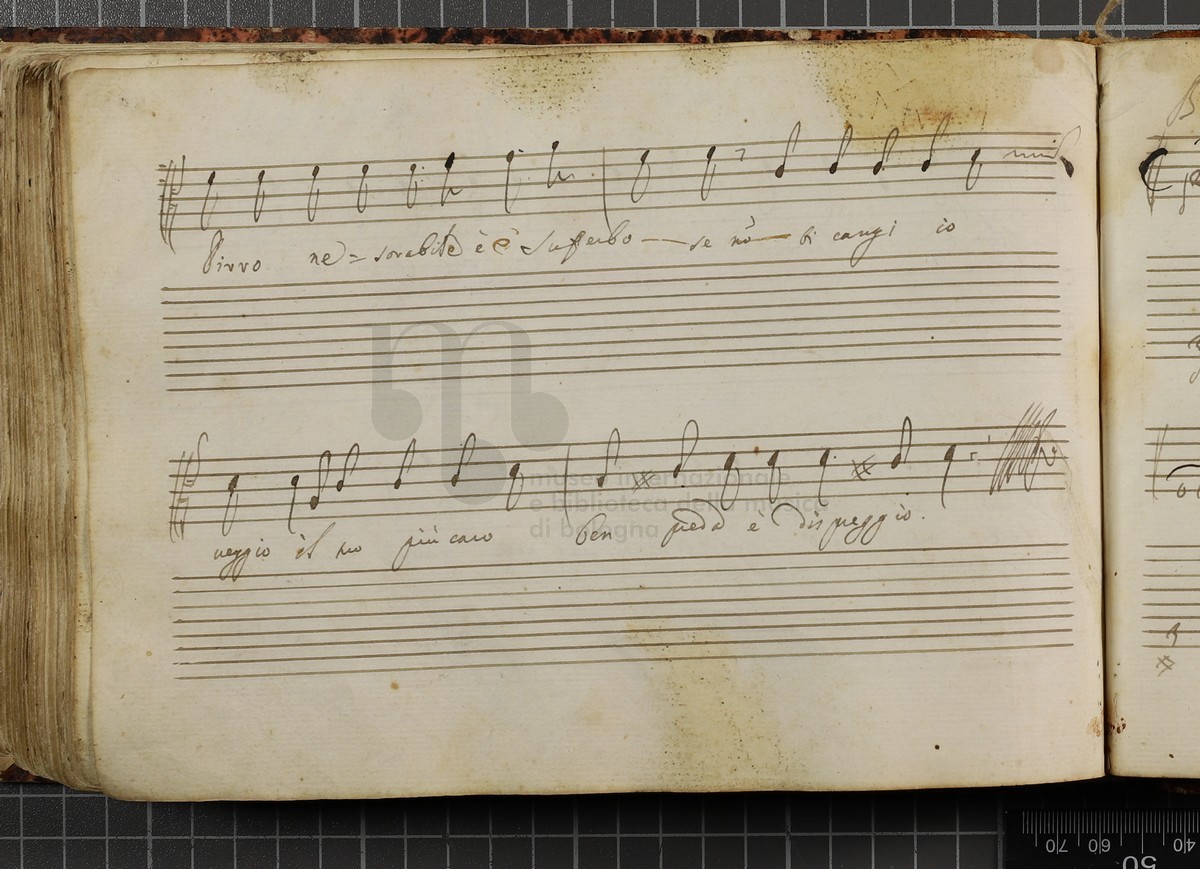 Pirro ne = sorabile è è Superbo — se nõ — ti cangi io
museo internazionale
e biblioteca della musica
di bologna
veggio il tuo più caro ben preda e dispreggio.
70 60 50 40